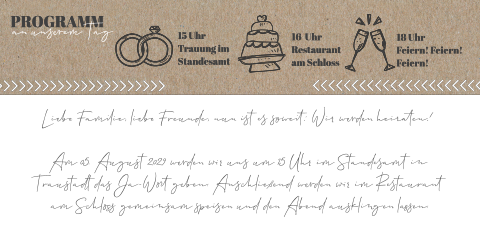 PROGRAMM
an unserem Tag
15 Uhr
Trauung im
Standesamt
16 Uhr
Restaurant
am Schloss
18 Uhr
Feiern! Feiern!
Feiern!
Liebe Familie, liebe Freunde, nun ist es soweit: Wir werden heiraten!
Am 05. August 2029 werden wir uns um 15 Uhr im Standesamt in
Traustadt das Ja-Wort geben. Anschließend werden wir im Restaurant
am Schloss gemeinsam speisen und den Abend ausklingen lassen.